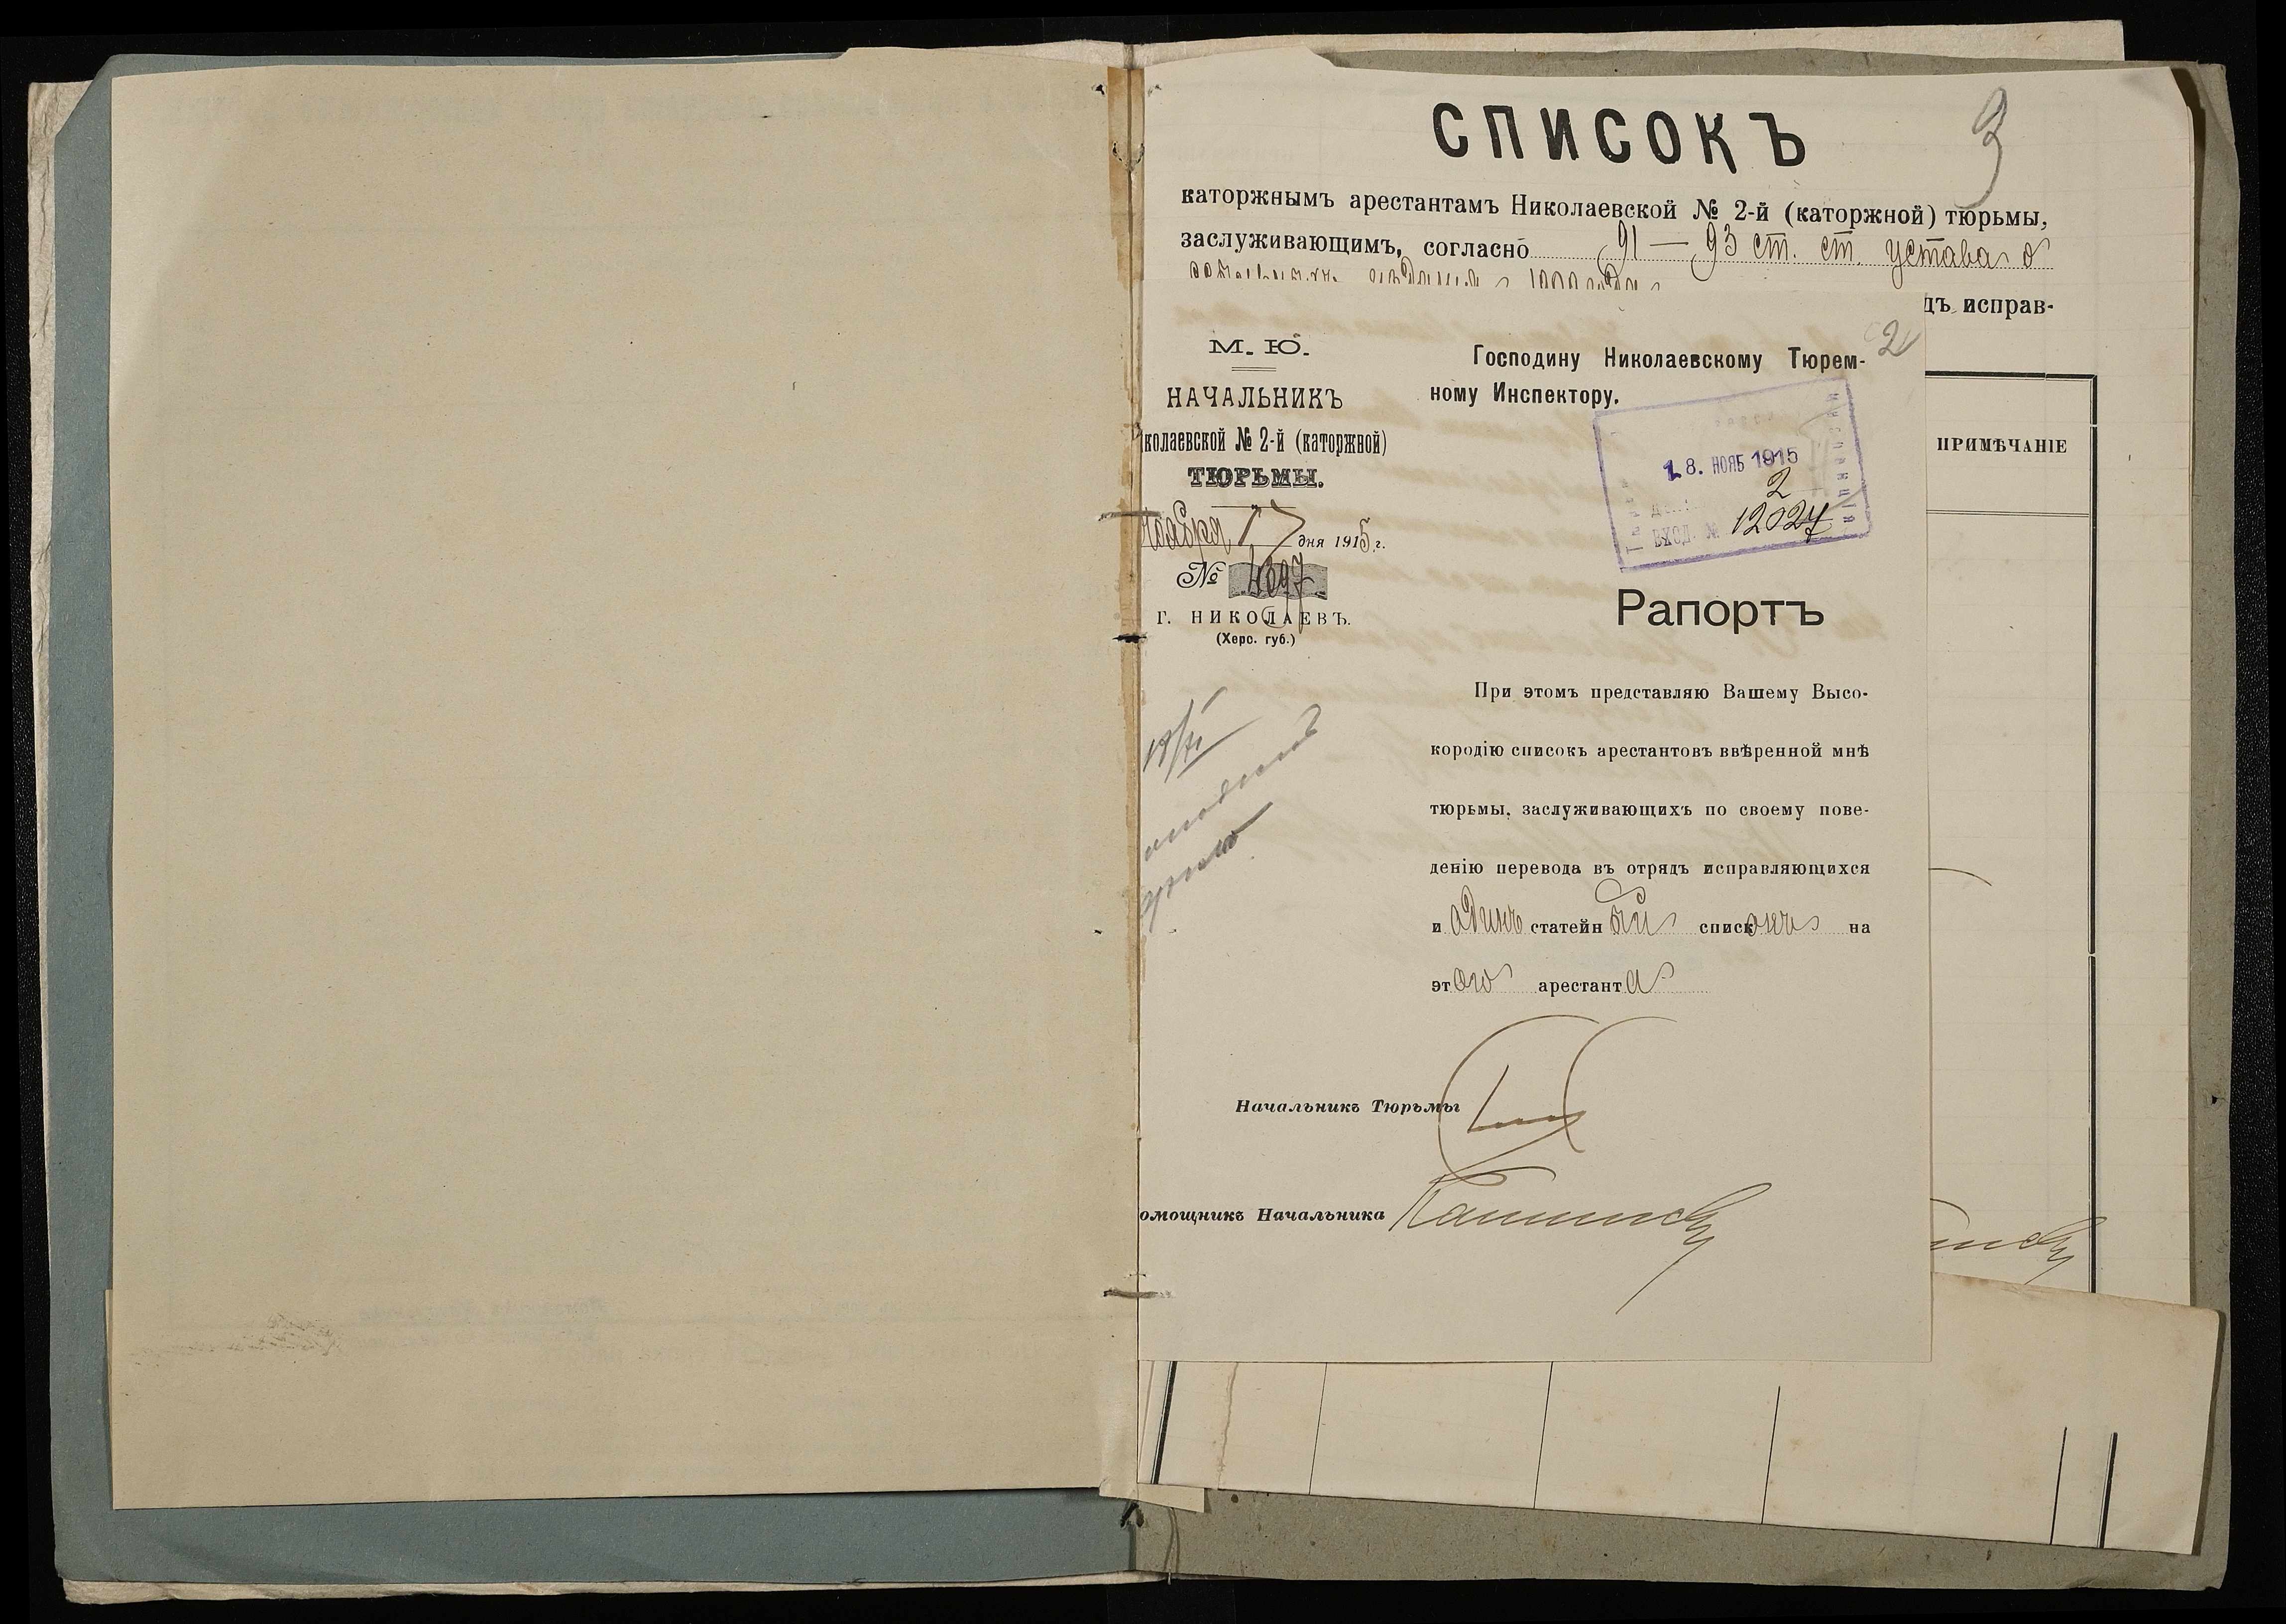 СПИСОКЪ
3
каторжнымъ арестантамъ Николаевской № 2-й (каторжной) тюрьмы,
заслуживающимъ, согласно 91 — 93 ст. ст. устава о
дъ исправ-
ПРИМѢЧАНІЕ
2
М. Ю.
НАЧАЛЬНИКЪ
колаевской № 2-й (каторжной)
ТЮРЬМЫ.
ноября 17 дня 1915 г.
№ 4697
Г. НИКОЛАЕВЪ.
(Херс. губ.)
19/XI
Господину Николаевскому Тюрем-
ному Инспектору.
18. НОЯБ 1915
2
ВХОД. № 12027
Рапортъ
При этомъ представляю Вашему Высо-
кородію списокъ арестантовъ ввѣренной мнѣ
тюрьмы, заслуживающихъ по своему пове-
денію перевода въ отрядъ исправляющихся
и одинъ статейный списокъ на
этого арестанта
Начальникъ Тюрьмы
омощникъ Начальника